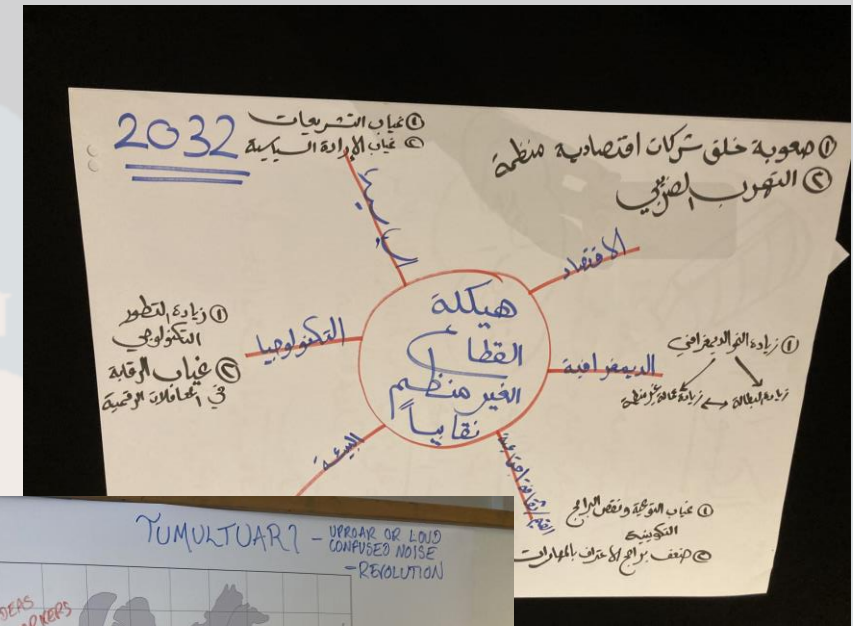 2032
① غياب التشريعات
② غياب الإرادة السياسية
① صعوبة خلق شركات اقتصادية منظمة
② التهرب الضريبي
السياسية
الاقتصاد
هيكلة
القطاع
الغير منظم
نقابياً
التكنولوجيا
① زيادة التطور
التكنولوجي
② غياب الرقابة
في المعاملات الرقمية
الديمغرافية
① زيادة النمو الديمغرافي
زيادة البطالة
زيادة عمالة غير منظمة
البيئة
① غياب التوعية ونقص البرامج
التكوينية
② ضعف برامج الاعتراف بالمهارات
TUMULTUARY – UPROAR OR LOUD
CONFUSED NOISE
– REVOLUTION